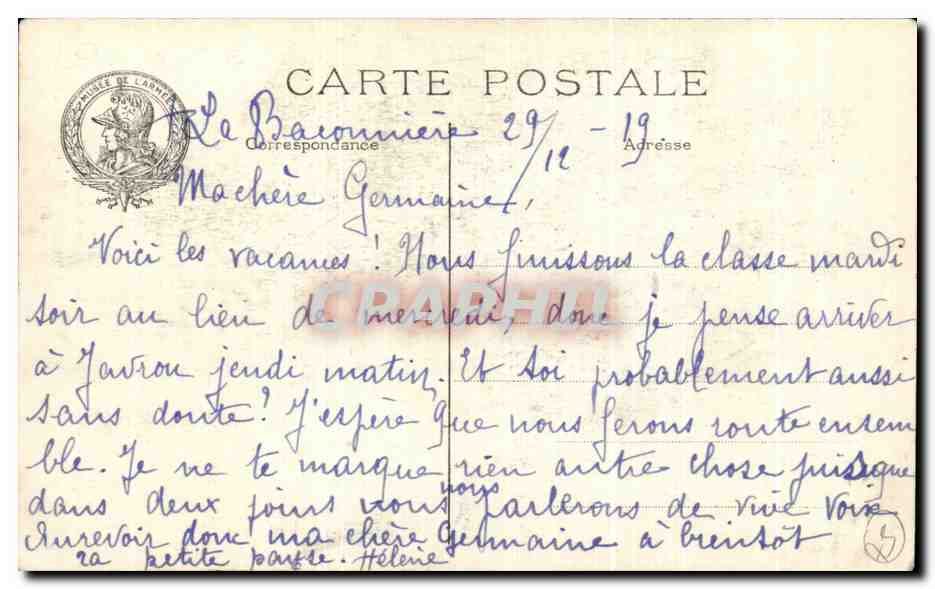 CARTE POSTALE
MUSÉE DE L'ARMÉE
La Baconnière 29/12 - 19
Correspondance
Adresse
Ma chère Germaine,
Voici les vacances ! Nous finissons la classe mardi
soir au lieu de mercredi, donc je pense arriver
CPARHIL
à Javron jeudi matin. Et toi probablement aussi
sans doute ? J'espère que nous ferons route ensem
ble. Je ne te marque rien autre chose puisque
dans deux jours nous nous parlerons de vive voix
Aurevoir donc ma chère Germaine à bientôt
ta petite payse. Hélène